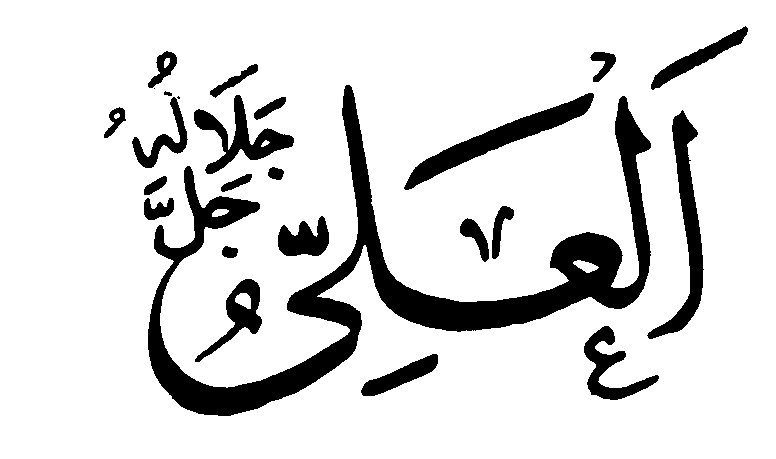 اَلْعَلِيُّ
جَلَّ جَلَالُهُ